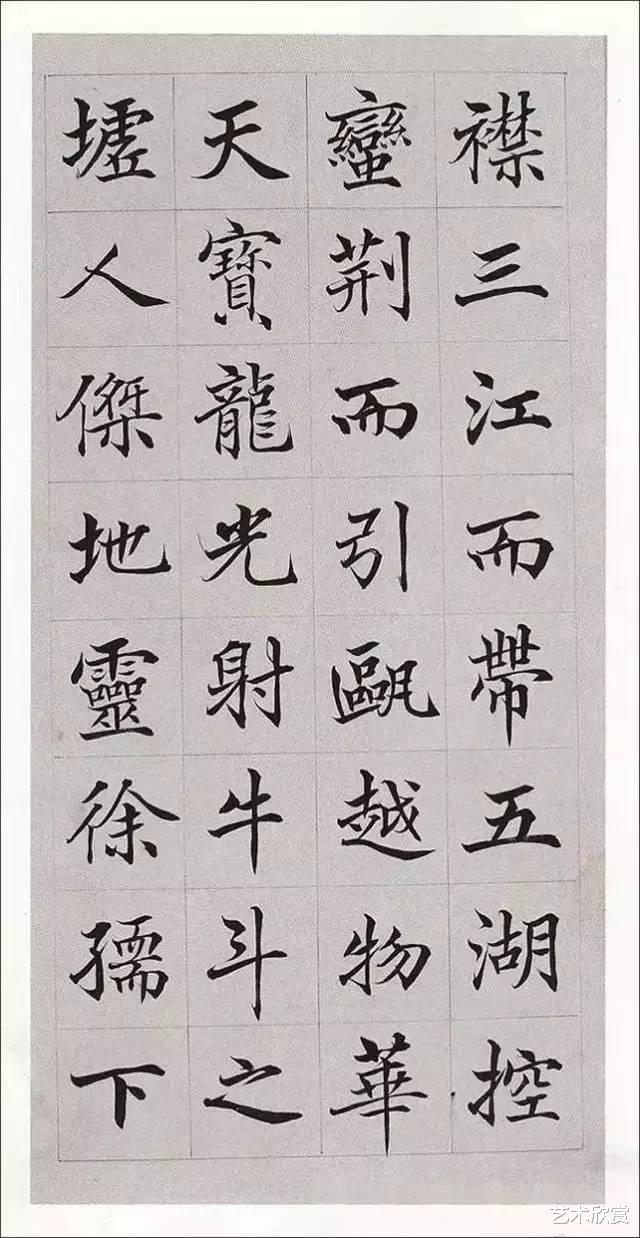 襟三江而帶五湖控
蠻荆而引甌越物華
天寶龍光射牛斗之
墟人傑地靈徐孺下
艺术欣赏